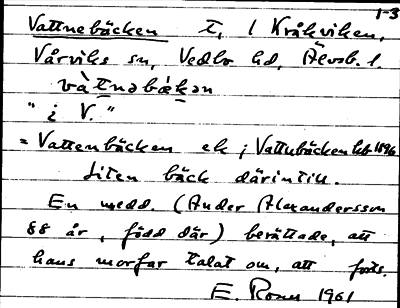 1-3
Vattnebäcken t. l Kråkviken,
Vårviks sn, Vedbo hd, Älvsb. l.
vàtnəbækən
" i V. "
= Vattenbäcken ek ; Vattubäcken hb 1896
Liten bäck därintill.
En medd. (Ander Alexandersson
88 år, född där) berättade, att
hans morfar talat om, att forts.
E. Rosén 1961